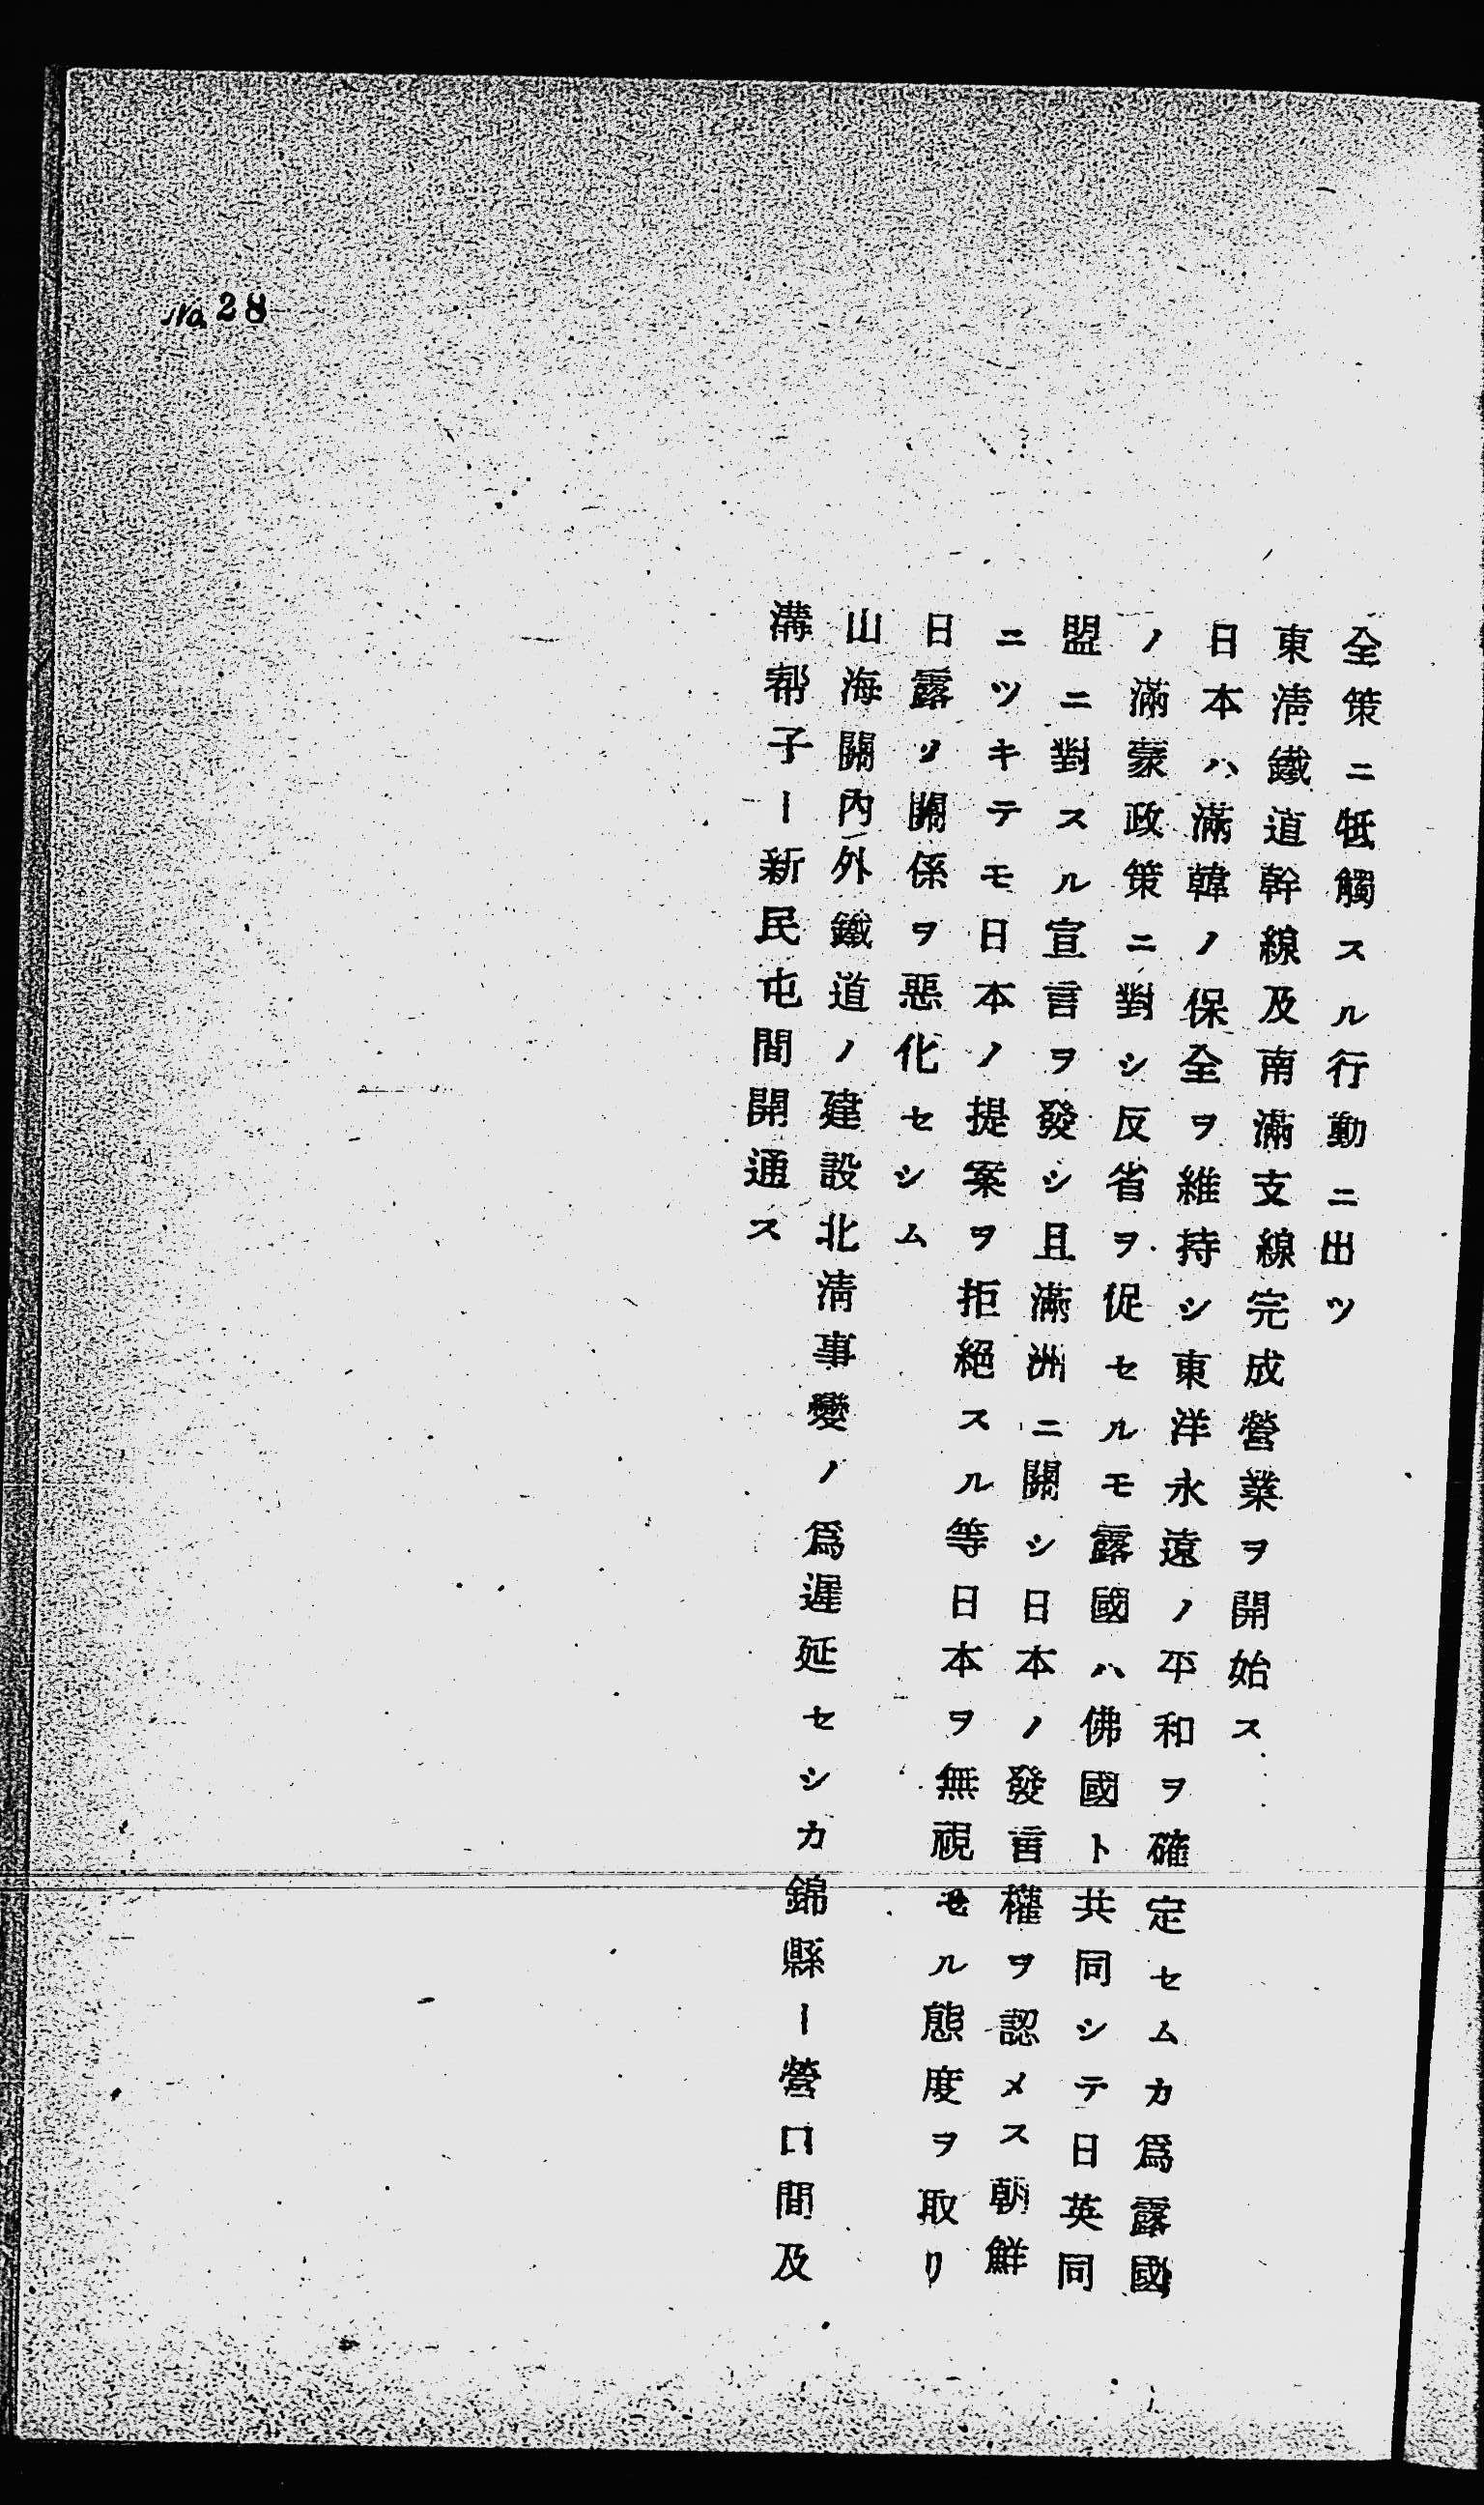 全策ニ牴觸スル行動ニ出ツ
東淸鐵道幹線及南滿支線完成營業ヲ開始ス
日本ハ滿韓ノ保全ヲ維持シ東洋永遠ノ平和ヲ確定セムカ爲露國
ノ滿蒙政策ニ對シ反省ヲ促セルモ露國ハ佛國ト共同シテ日英同
盟ニ對スル宣言ヲ發シ且滿洲ニ關シ日本ノ發言權ヲ認メス朝鮮
ニツキテモ日本ノ提案ヲ拒絕スル等日本ヲ無視セル態度ヲ取リ
日露ノ關係ヲ惡化セシム
山海關內外鐵道ノ建設北淸事變ノ爲遲延セシカ錦縣ー營口間及
溝幇子ー新民屯間開通ス
No. 28